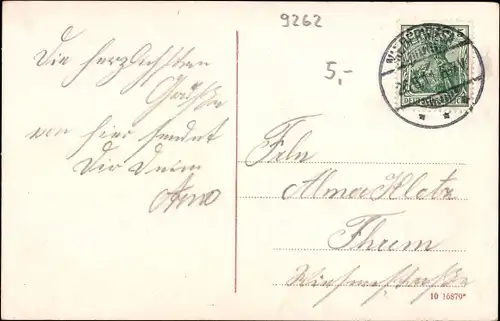 9262
5,-
Die herzlichsten
Grüße
von hier sendet
Dir Deine
Arno
DEUTSCHES REICH
Frln
Alma Klotz
Thum
10 16879*